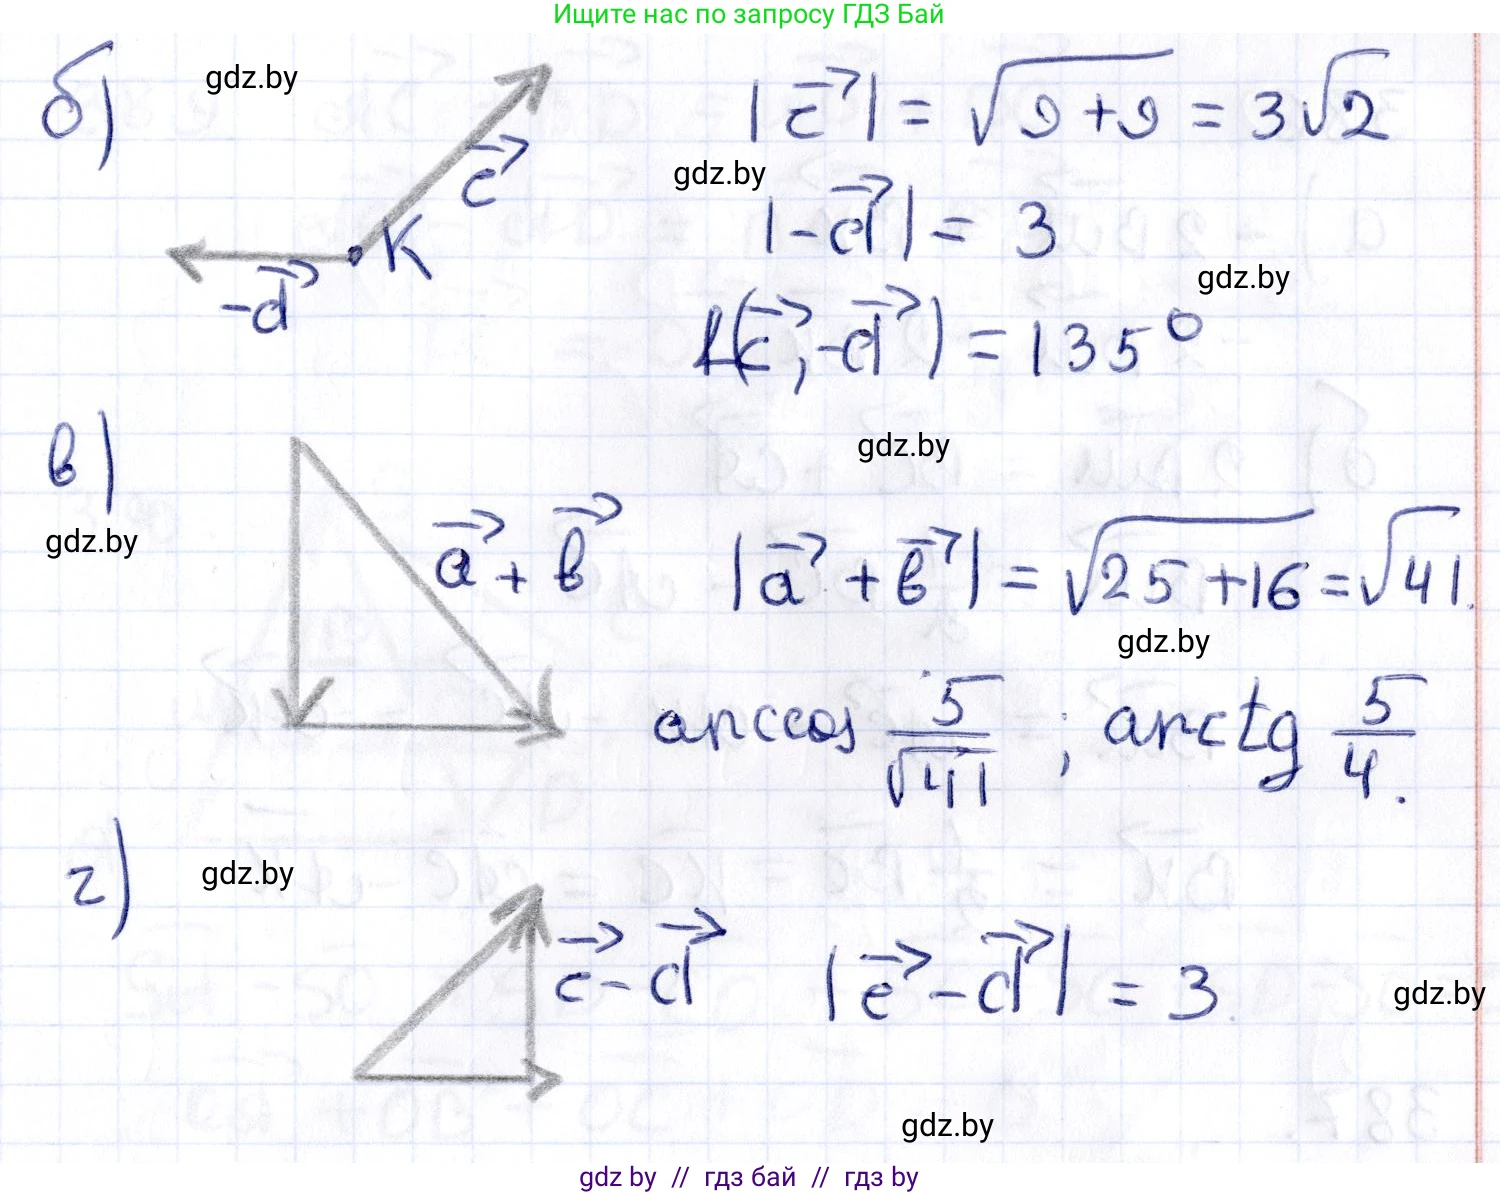 Ищите нас по запросу ГДЗ Бай
б) gdz.by |c⃗| = √(9+9) = 3√2
c⃗ gdz.by
K |-d⃗| = 3
-d⃗ gdz.by
∠(c⃗, -d⃗) = 135°
в) gdz.by
gdz.by a⃗ + b⃗ |a⃗ + b⃗| = √(25+16) = √41.
gdz.by
arccos 5/√41 ; arctg 5/4.
г) gdz.by
c⃗ - d⃗ |c⃗ - d⃗| = 3. gdz.by
gdz.by
gdz by // гдз бай // гдз by